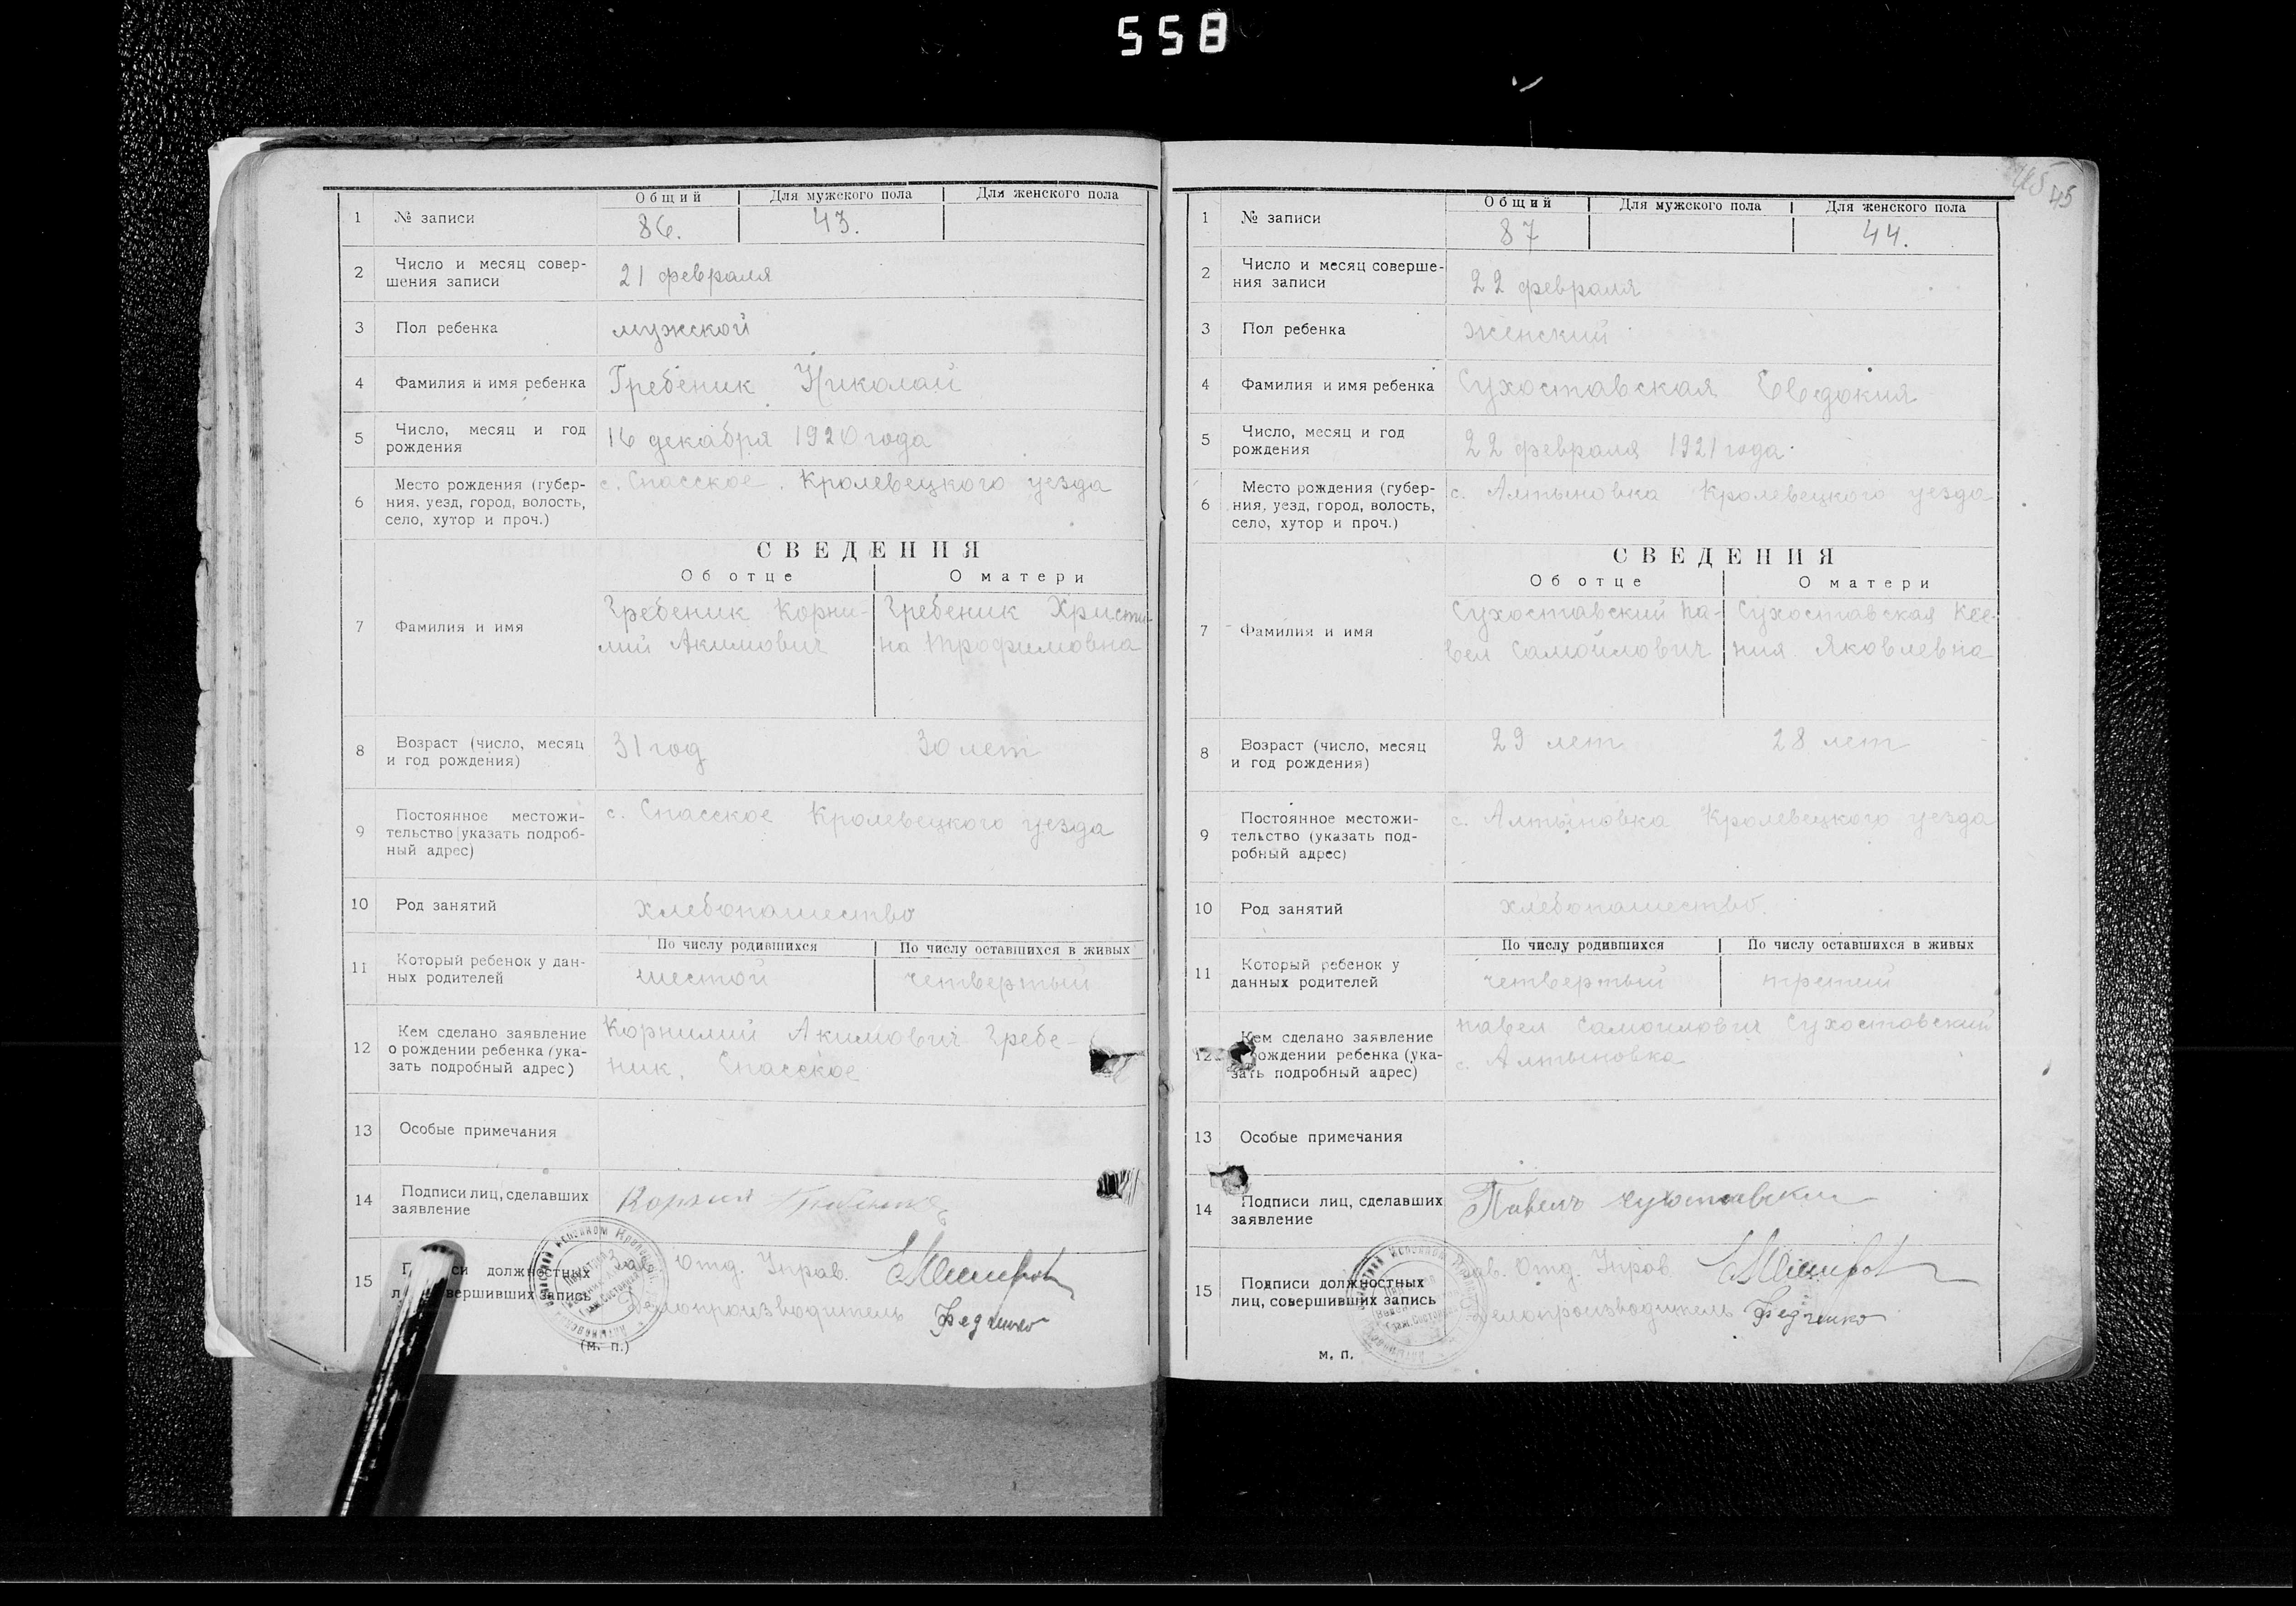 558
Общий Для мужского пола Для женского пола
1 № записи 86. 43.
2 Число и месяц совер-
шения записи 21 февраля
3 Пол ребенка мужской
4 Фамилия и имя ребенка Гребеник Николай
5 Число, месяц и год
рождения 16 декабря 1920 года
6 Место рождения (губер-
ния, уезд, город, волость,
село, хутор и проч.) с. Спасское. Кролевецкого уезда
СВЕДЕНИЯ
Об отце О матери
7 Фамилия и имя
Гребеник Корни- Гребеник Христи-
лий Акимович на Трофимовна
8 Возраст (число, месяц
и год рождения) 31 год 30 лет
9 Постоянное местожи-
тельство (указать подроб-
ный адрес) с. Спасское Кролевецкого уезда
10 Род занятий хлебопашество
По числу родившихся По числу оставшихся в живых
11 Который ребенок у дан-
ных родителей шестой четвертый
12 Кем сделано заявление
о рождении ребенка (ука-
зать подробный адрес)
Корнилий Акимович Гребе-
ник. Спасское
13 Особые примечания
14 Подписи лиц, сделавших
заявление
15 должностных
вершивших запись
Отд. Управ.
Делопроизводитель Федченко
(м. п.)
45 45
Общий Для мужского пола Для женского пола
1 № записи 87 44.
2 Число и месяц соверше-
ния записи 22 февраля
3 Пол ребенка женский
4 Фамилия и имя ребенка Сухоставская Евдокия
5 Число, месяц и год
рождения 22 февраля 1921 года.
6 Место рождения (губер-
ния, уезд, город, волость,
село, хутор и проч.) с. Алтыновка Кролевецкого уезда
СВЕДЕНИЯ
Об отце О матери
7 Фамилия и имя
Сухоставский Па- Сухоставская Ксе-
вел Самойлович ния Яковлевна
8 Возраст (число, месяц
и год рождения) 29 лет 28 лет
9 Постоянное местожи-
тельство (указать под-
робный адрес) с. Алтыновка Кролевецкого уезда
10 Род занятий хлебопашество.
По числу родившихся По числу оставшихся в живых
11 Который ребенок у
данных родителей четвертый третий
12 Кем сделано заявление
рождении ребенка (ука-
зать подробный адрес)
Павел Самойлович Сухоставский
с. Алтыновка
13 Особые примечания
14 Подписи лиц, сделавших
заявление
Павелъ Сухоставски
15 Подписи должностных
лиц, совершивших запись
Зав. Отд. Управ.
Делопроизводитель Федченко
м. п.